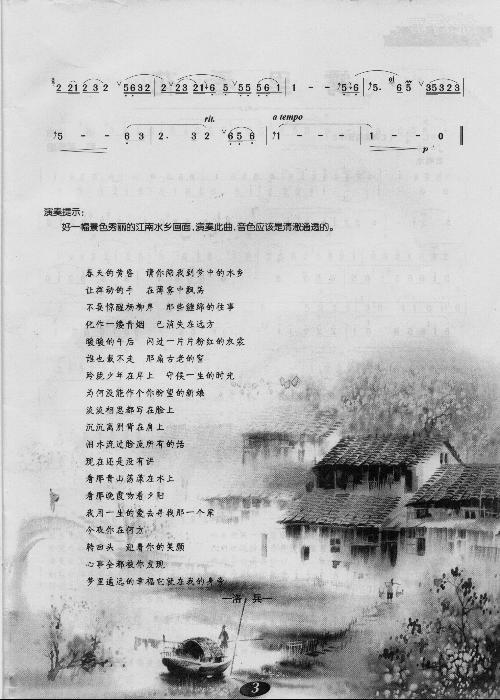 2 2 1 2 3 2 5 6 3 2 2 · 2 3 2 1 6 5 5 5 5 6 1 1 - - 5 · 6 5 · 6 5 3 5 3 2 3
rit. a tempo
5 - - 6 3 2 · 3 2 6 5 6 1 - - 1 - 0
p
演奏提示:
好一幅景色秀丽的江南水乡画面,演奏此曲,音色应该是清澈通透的。
春天的黄昏 请你陪我到梦中的水乡
让挥动的手 在薄雾中飘荡
不要惊醒杨柳岸 那些缠绵的往事
化作一缕青烟 已消失在远方
暖暖的午后 闪过一片片粉红的衣裳
谁也载不走 那扇古老的窗
玲珑少年在岸上 守候一生的时光
为何没能作个你盼望的新娘
淡淡相思都写在脸上
沉沉离别背在肩上
泪水流过脸庞所有的话
现在还是没有讲
看那青山荡漾在水上
看那晚霞吻着夕阳
我用一生的爱去寻找那一个家
今夜你在何方
转回头 迎着你的笑颜
心事全都被你发现
梦里遥远的幸福它就在我的身旁
—洛 兵—
3